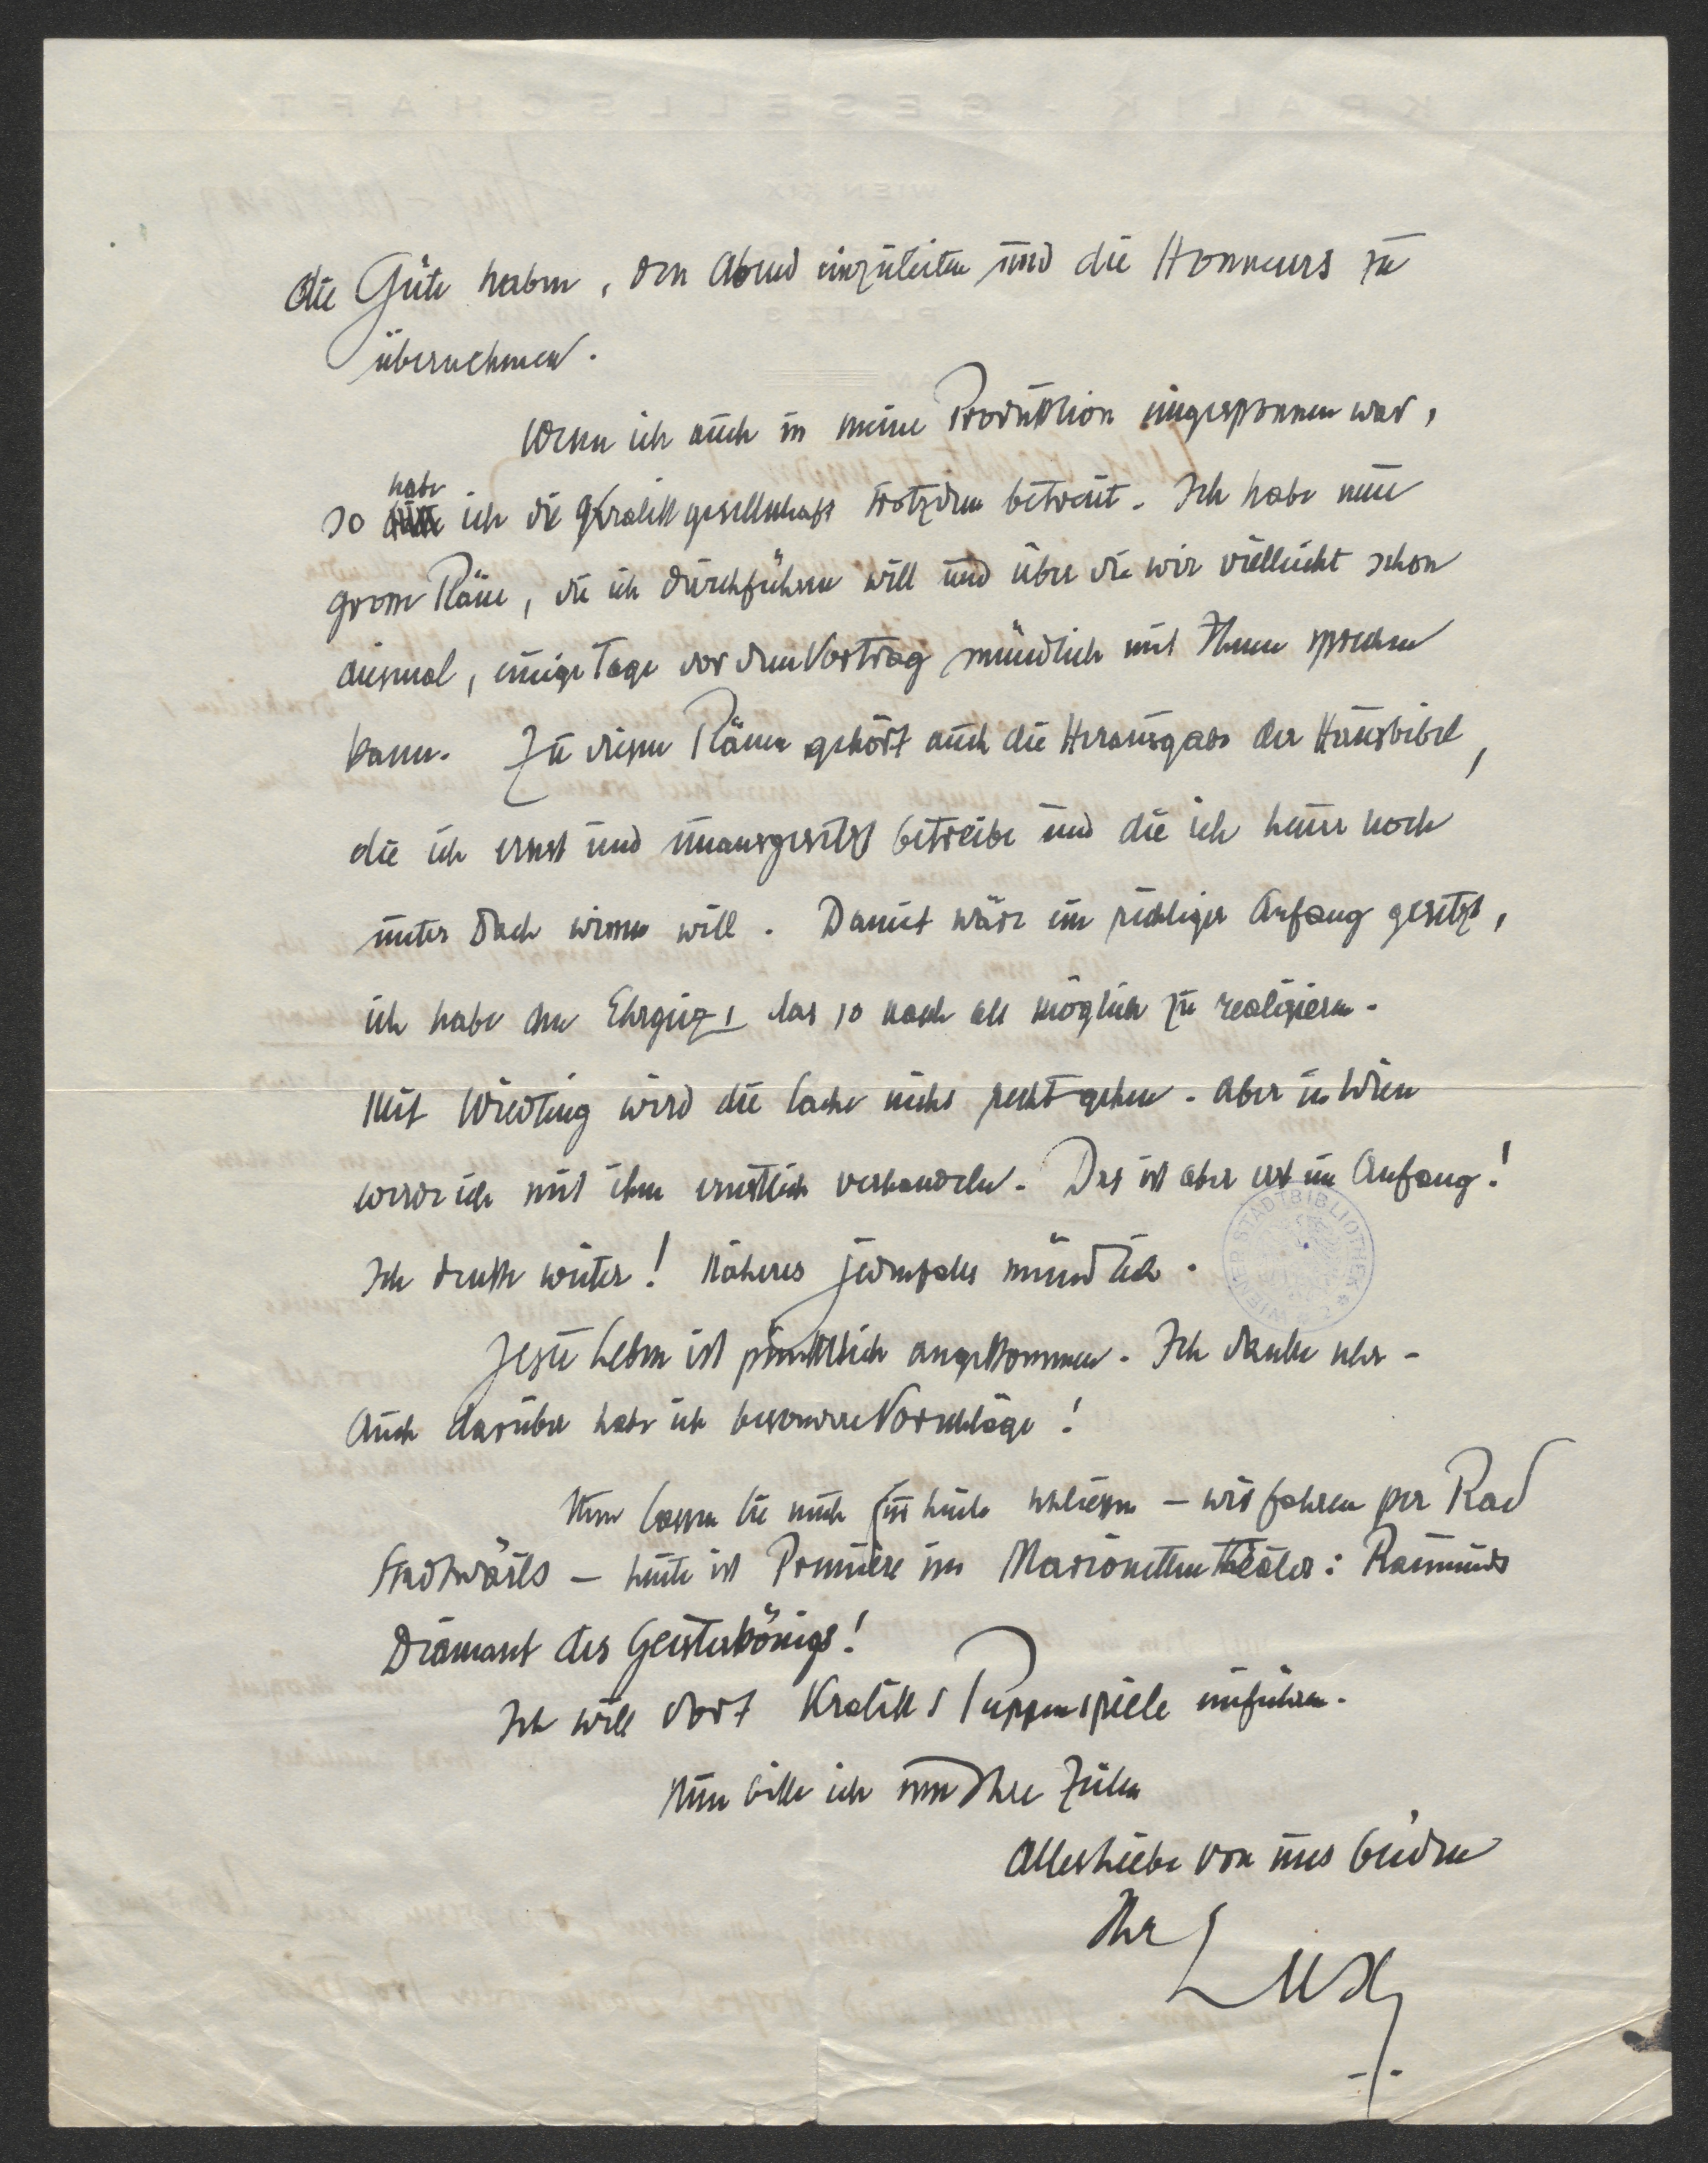 die Güte haben, den Abend einzuleiten und die Honneurs zu
übernehmen.
Wenn ich auch in meine Produktion eingesponnen war,
so habe ich die Kralikgesellschaft trotzdem betreut. Ich habe neue
grosse Pläne, die ich durchführen will und über die wir vielleicht schon
diesmal, einige Tage vor dem Vortrag mündlich mit Ihnen sprechen
kann. Zu diesen Plänen gehört auch die Herausgabe der Hausbibel,
die ich ernst und unausgesetzt betreibe und die ich heuer noch
unter Dach wissen will. Damit wäre ein richtiger Anfang gesetzt,
ich habe den Ehrgeiz, das so rasch als möglich zu realisieren.
Mit Wiedling wird die Sache nicht recht gehen. Aber in Wien
werde ich mit ihm ernstlich verhandeln. Das ist aber erst ein Anfang!
Ich denke weiter! Näheres jedenfalls mündlich.
Jesu Leben ist pünktlich angekommen. Ich danke sehr -
Auch darüber habe ich besondere Vorschläge!
Nun lassen Sie mich für heute schliessen - wir fahren per Rad
stadtwärts - heute ist Première im Marionettentheater: Raimunds
Diamant des Geisterkönigs!
Ich will dort Kraliks Puppenspiele einführen.
Nun bitte ich um Ihre Zeilen
Alles Liebe von uns beiden
Ihr
Lux
WIENER STADTBIBLIOTHEK
KRALIK-GESELLSCHAFT
WIEN XIX